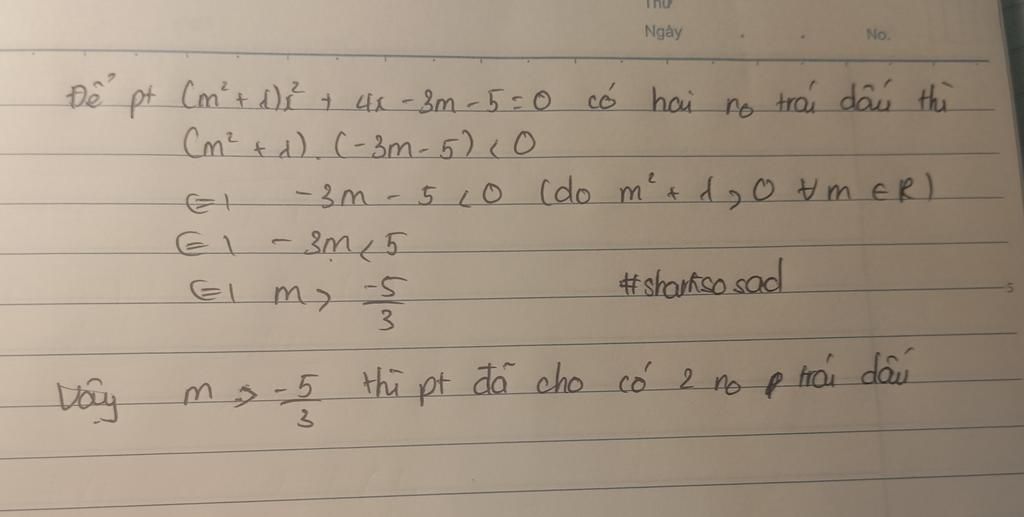 Thứ
Ngày . . No.
Để pt (m² + 1)x² + 4x - 3m - 5 = 0 có hai no trái dấu thì
(m² + 1). (-3m - 5) < 0
<=> -3m - 5 < 0 (do m² + 1 > 0 ∀m ∈ R)
<=> - 3m < 5
<=> m > -5/3 #sharksosad
5
Vậy m > -5/3 thì pt đã cho có 2 no trái dấu